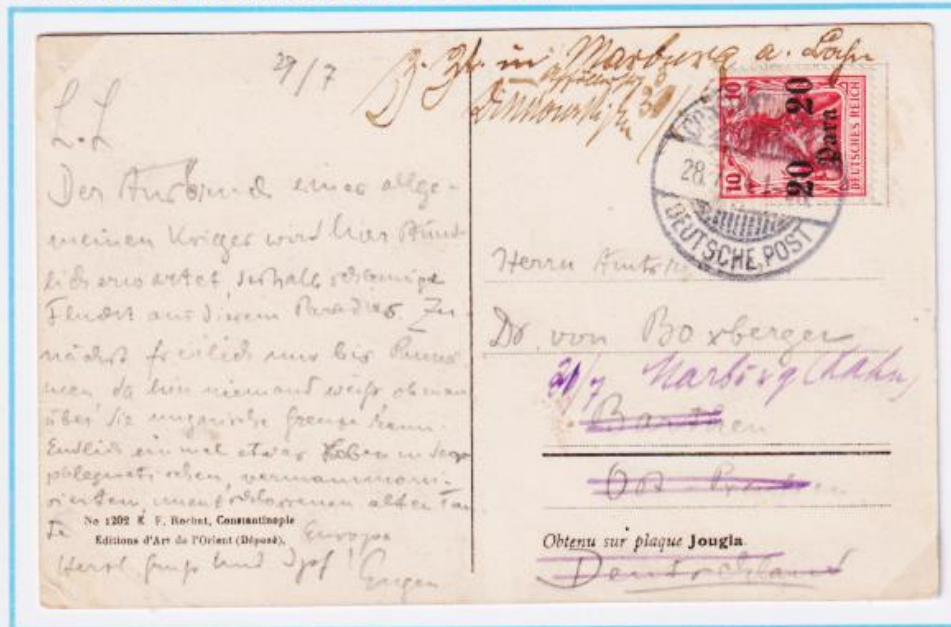 29/7
z. Zt. in Marburg a. Lahn
30/
L. L
Der Ausbruch eines allge-
meinen Krieges wird hier stünd-
lich erwartet, deshalb schleunige
Flucht aus diesem Paradies. Zu-
nächst freilich nur bis Rumä-
nien, da hier niemand weiß ob man
über die ungarische Grenze kann.
Endlich einmal etwas Leben in der
phlegmatischen,
alten Tan-
te Europa
Herzl. Gruß und
Eugen
No 1202 E. F. Rochat, Constantinople
Editions d'Art de l'Orient (Déposé),
10 10
20 20
Para
DEUTSCHES REICH
28.7
DEUTSCHE POST
Herrn
Dr. von Boxberger
Marburg (Lahn)
Deutschland
Obtenu sur plaque Jougla.